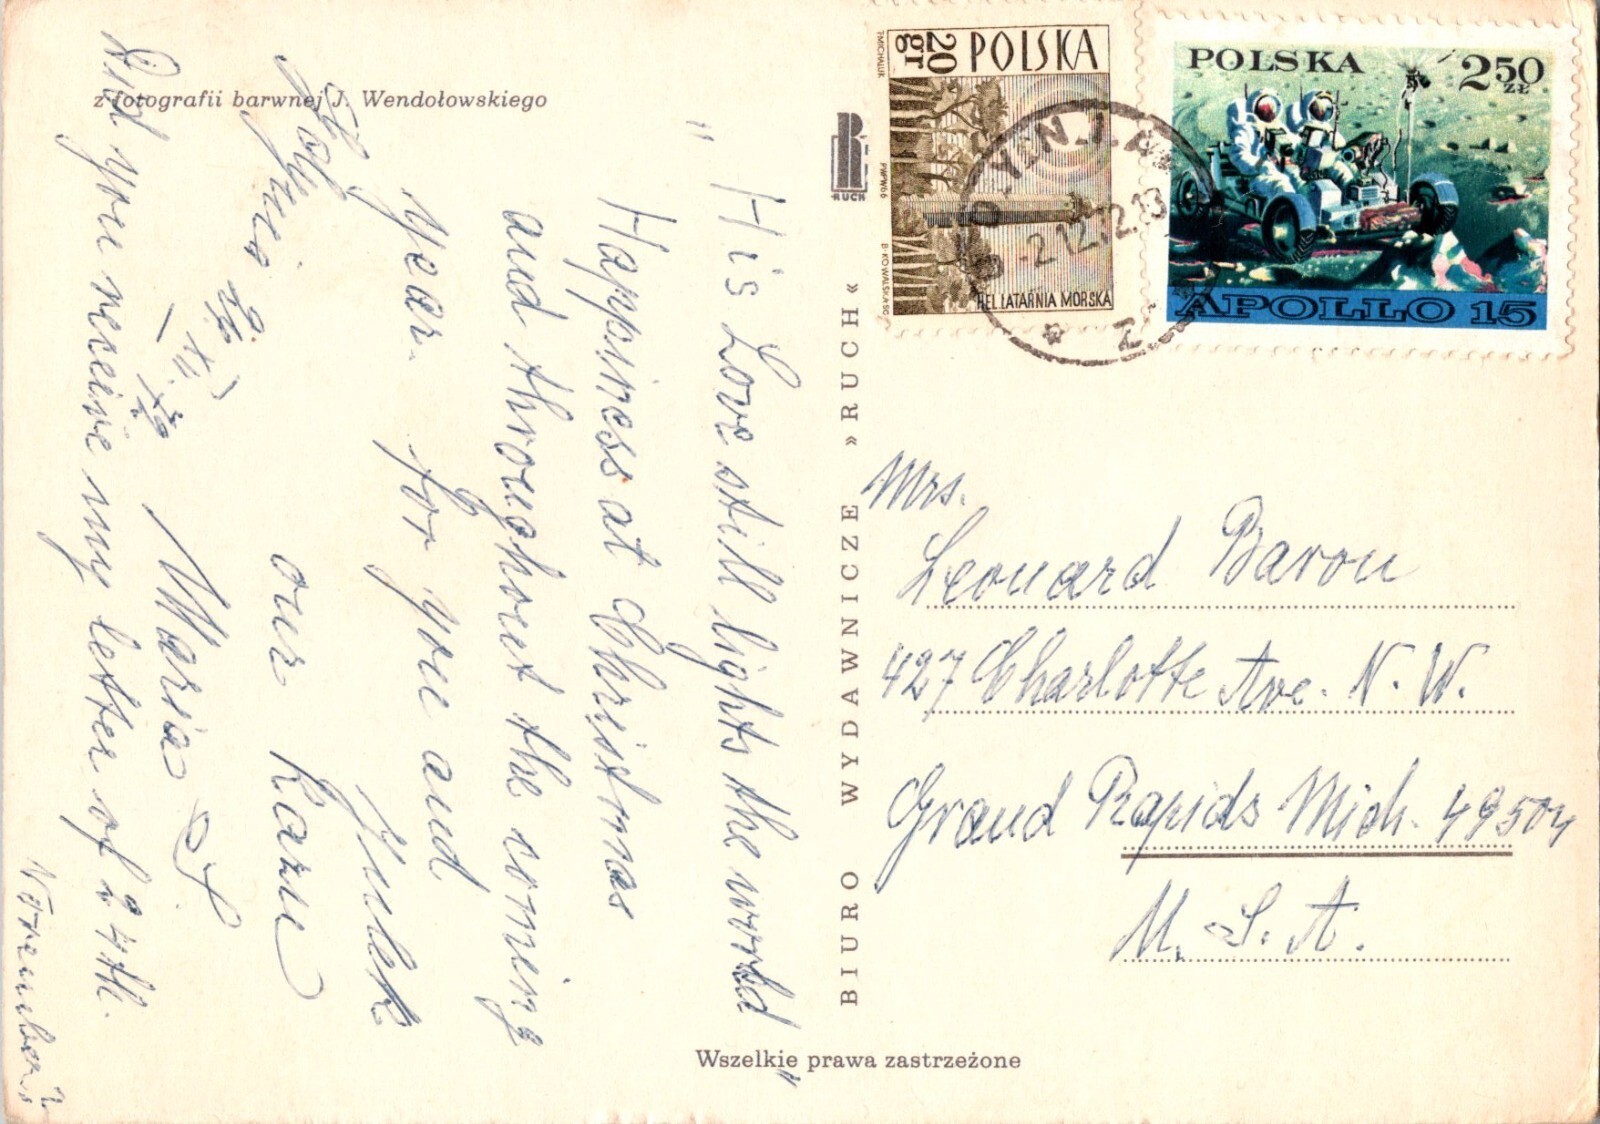 z fotografii barwnej J. Wendołowskiego
" His Love still lights the world "
Happiness at Christmas
and throughout the coming
year. for you and
Julek
our Kazu
Maria
Did you receive my letter of 24th.
November?
BIURO WYDAWNICZE »RUCH«
RUCH
Wszelkie prawa zastrzeżone
POLSKA
20 gr
T. MICHALUK
PWPW 66
B. KOWALSKA SC
HEL LATARNIA MORSKA
-2.12.72.13
POLSKA
250 ZŁ
APOLLO 15
Mrs.
Leonard Baron
427 Charlotte Ave. N. W.
Grand Rapids Mich. 49504
U. S. A.